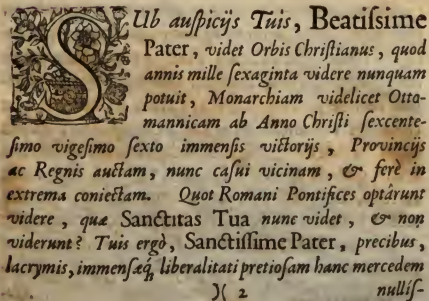 SUb auſpicijs Tuis, Beatiſsime
Pater, videt Orbis Chriſtianus, quod
annis mille ſexaginta videre nunquam
potuit, Monarchiam videlicet Otto-
mannicam ab Anno Chriſti ſexcente-
ſimo vigeſimo ſexto immenſis victorijs, Provincijs
ac Regnis auctam, nunc caſui vicinam, & ferè in
extrema coniectam. Quot Romani Pontifices optárunt
videre, quæ Sanctitas Tua nunc videt, & non
viderunt? Tuis ergò, Sanctiſſime Pater, precibus,
lacrymis, immenſæq́; liberalitati pretioſam hanc mercedem
)( 2 nulliſ-